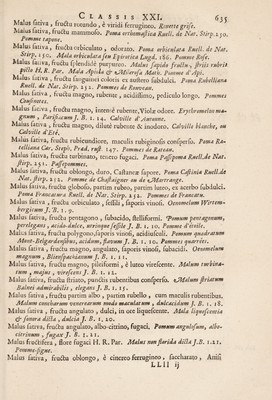 CLASSIS XXI. 635
Malus sativa, fructu rotundo, è viridi ferrugineo. Rivette grise.
Malus sativa, fructu mammoso. Poma orthomastica Ruell. de Nat. Stirp. 250.
Pomme tapone.
Malus sativa, fructu orbiculato, odorato. Poma orbiculata Ruell. de Nat.
Stirp. 250. Mala orbiculata seu Epirotica Lugd. 286. Pomme Rose.
Malus sativa, fructu splendidè purpureo. Malus sapida fructu, sericè rubris
pilis H. R. Par. Mala Apiola & Melirosa Matii. Pomme d'Api.
Malus sativa, fructu sanguinei coloris ex austero subdulci. Poma Rubelliana
Ruell. de Nat. Stirp. 252. Pommes de Rouveau.
Malus sativa, fructu magno, rubente, acidissimo, pediculo longo. Pommes
Malus sativa, fructu magno, intensè rubente, Violæ odore. Erythromelon magnum,
Parisiacum J. B. 1. 14. Calville d'Automne.
Malus sativa, fructu magno, dilutè rubente & inodoro. Calville blanche, ou
Calville d'Eté.
Malus sativa, fructu rubicundiore, maculis rubiginosis consperso. Poma
Pommes de Rateau.
Malus sativa, fructu turbinato, tenero fugaci. Poma Passipoma Ruell. de Nat.
stirp. 251. Passepommes.
Malus sativa, fructu oblongo, duro, Castaneæ sapore. Poma Castinia Ruell. de
Nat. Stirp. 252. Pomme de Chastaignier ou de Martrange.
Malus sativa, fructu globoso, partim rubro, partim luteo, ex acerbo subdulci.
Poma Francatura Ruell. de Nat. Stirp. 251. Pommes de Francatu.
Malus sativa, fructu orbiculato, sessili, saporis vinosi. Oenomelum Wirtembergicum
J. B. 1. 9.
Malus sativa, fructu pentagono, subacido, stelliformi. Pomum pentagonum,
perelegans, acido-dulce, utrinque sessile J. B. 1. 10. Pomme d'étoile.
Malus sativa, fructu polygono, saporis vinosi, aciduscùli. Pomum quadratum
Mont-Belgardensibus, acidum, flavum J. B. 1. 10. Pommes quarrées.
Malus sativa, fructu magno, angulato, saporis vinosi, subacidi. Oenomelum
magnum, J. B. 1. 11.
Malus sativa, fructu magno, pileiformi, è luteo virescente. Malum turbinatum,
majus, virescens J. B. 1. 12.
Malus sativa, fructu striato, punctis rubentibus consperso. Malum striatum
Balnei admirabilis, elegans J. B. 1. 15.
Malus sativa, fructu partim albo, partim rubello, cum maculis rubentibus.
Malum cerebrorum venarorum modo maculatum, dulcacidum J. B. 1. 18.
Malus sativa, fructu angulato, dulci, in ore liquescente. Mala liquescentia
& sonora dilla, dulcia J. B. 1. 20.
Malus sativa, fructu angulato, albo-citrino, fugaci. Pomum angulosum, albo-citrinum,
fugax J. B. 1. 21.
Malus fructifera, flore fugaci H. R. Par. Malus non florida dicta J.B. 1.21.
Pomme-figue.
Malus sativa, fructu oblongo, è cinereo ferrugineo, saccharato, Anisi
LLll ij